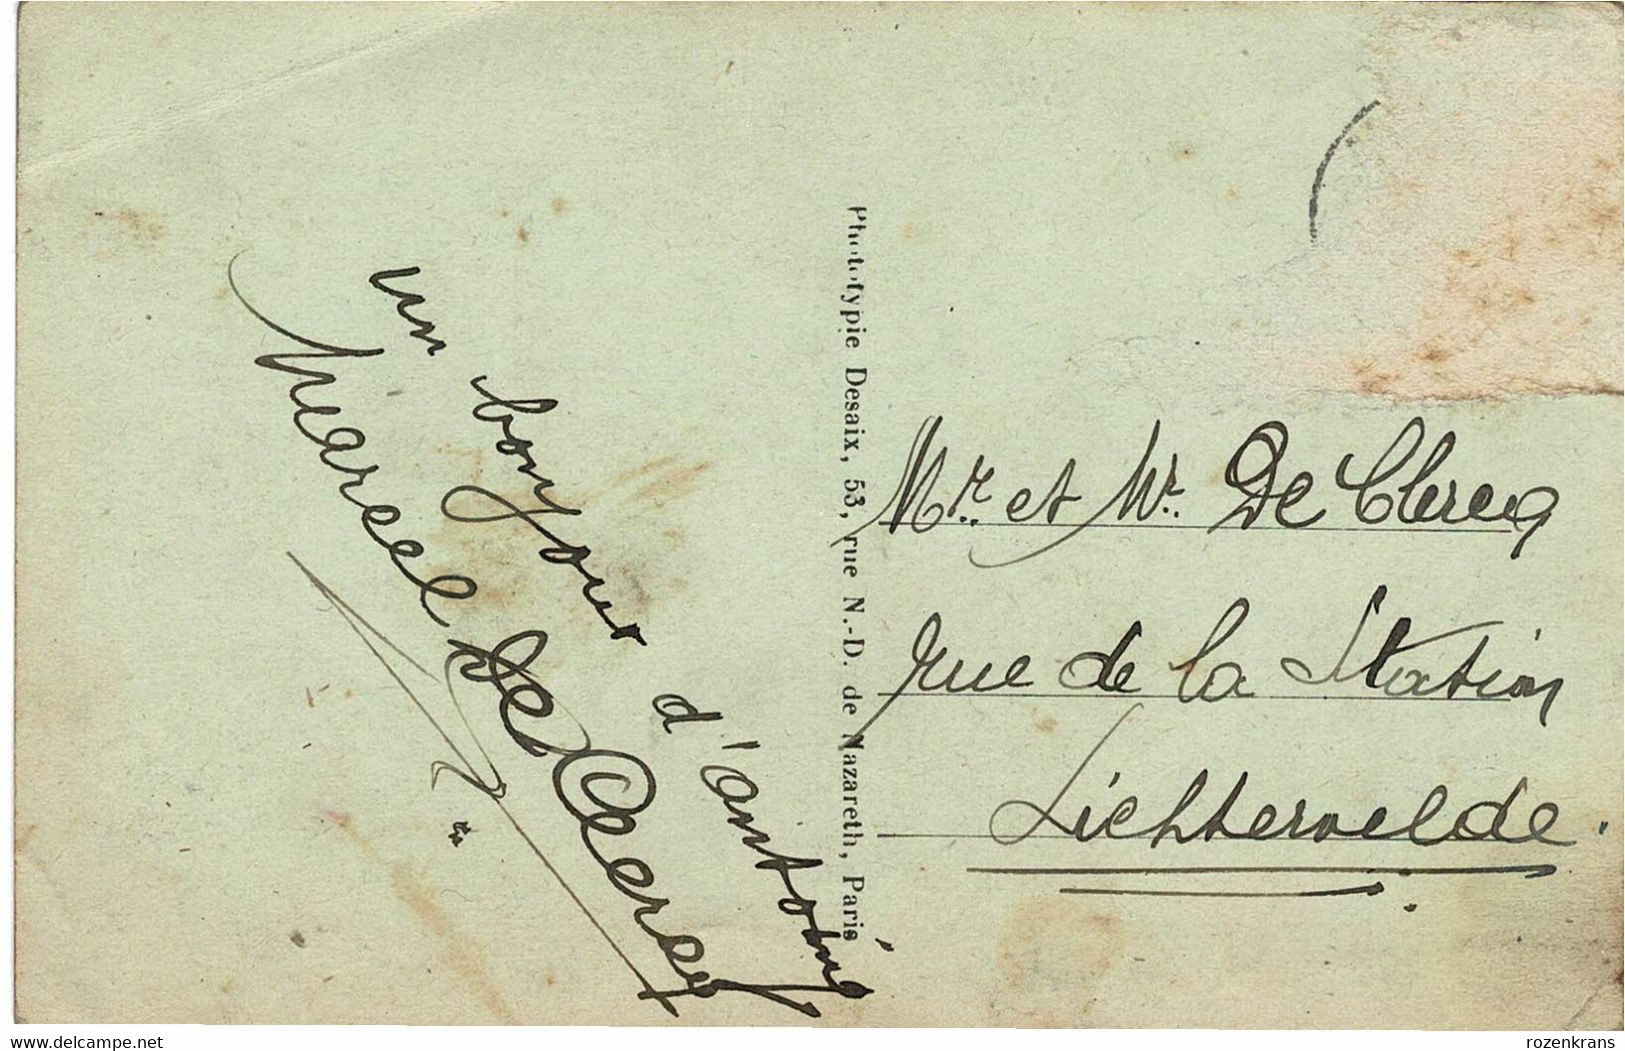 un bonjour d'antoing
Marcel De Clercq
Phototypie Desaix, 53, rue N.-D. de Nazareth, Paris
Mr. et Mr. De Clercq
rue de la Station
Lichtervelde.
www.delcampe.net
rozenkrans